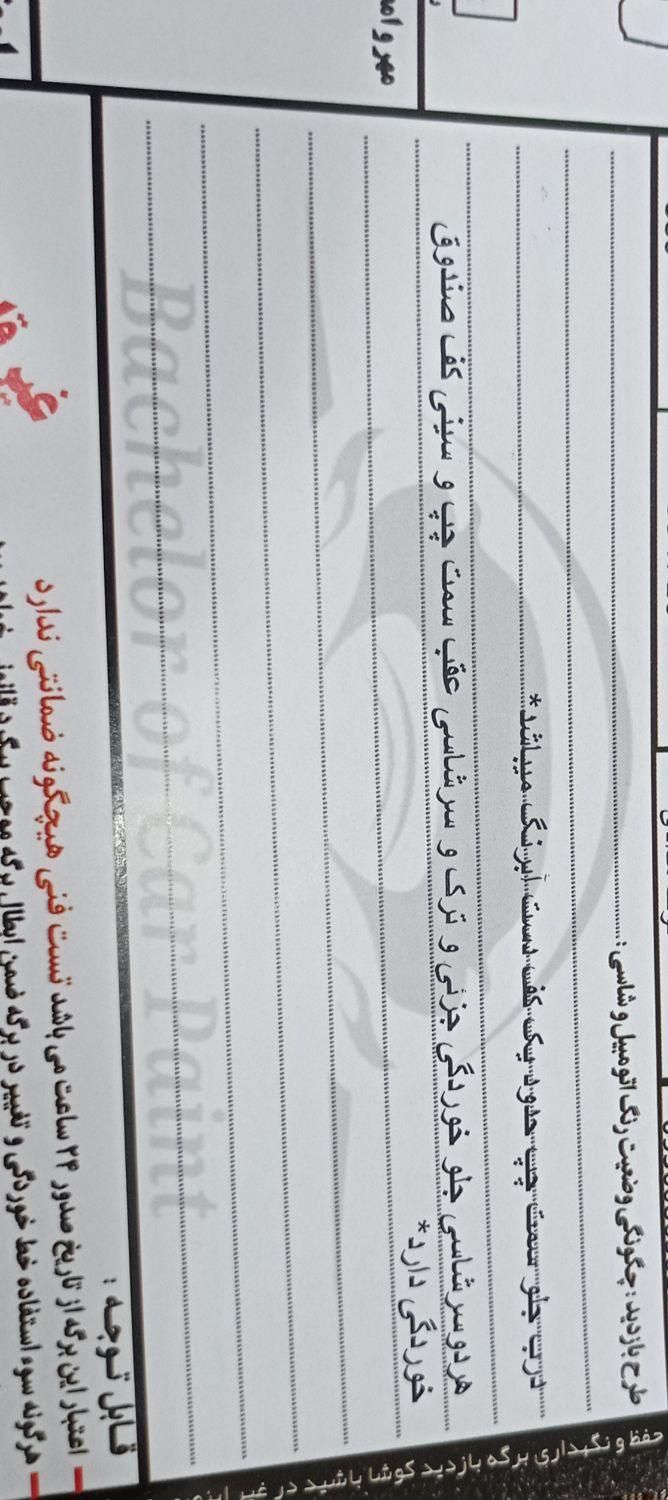 مهر و
طرح بازدید : چگونگی وضعیت رنگ اتومبیل و شاسی :
درب جلو سمت چپ حدود یک کف دست آبرنگ میباشد*
هر دو سر شاسی جلو خوردگی جزئی و ترک و سر شاسی عقب سمت چپ و سینی کف صندوق
خوردگی دارد*
Bachelor of Car Paint
قابل توجه :
اعتبار این برگه از تاریخ صدور ۲۴ ساعت می باشد تست فنی هیچگونه ضمانتی ندارد
هرگونه سوء استفاده خط خوردگی و تغییر در برگه ضمن ابطال برگه موجب پیگرد قانونی
غیر
حفظ و نگهداری برگه بازدید کوشا باشید در غیر